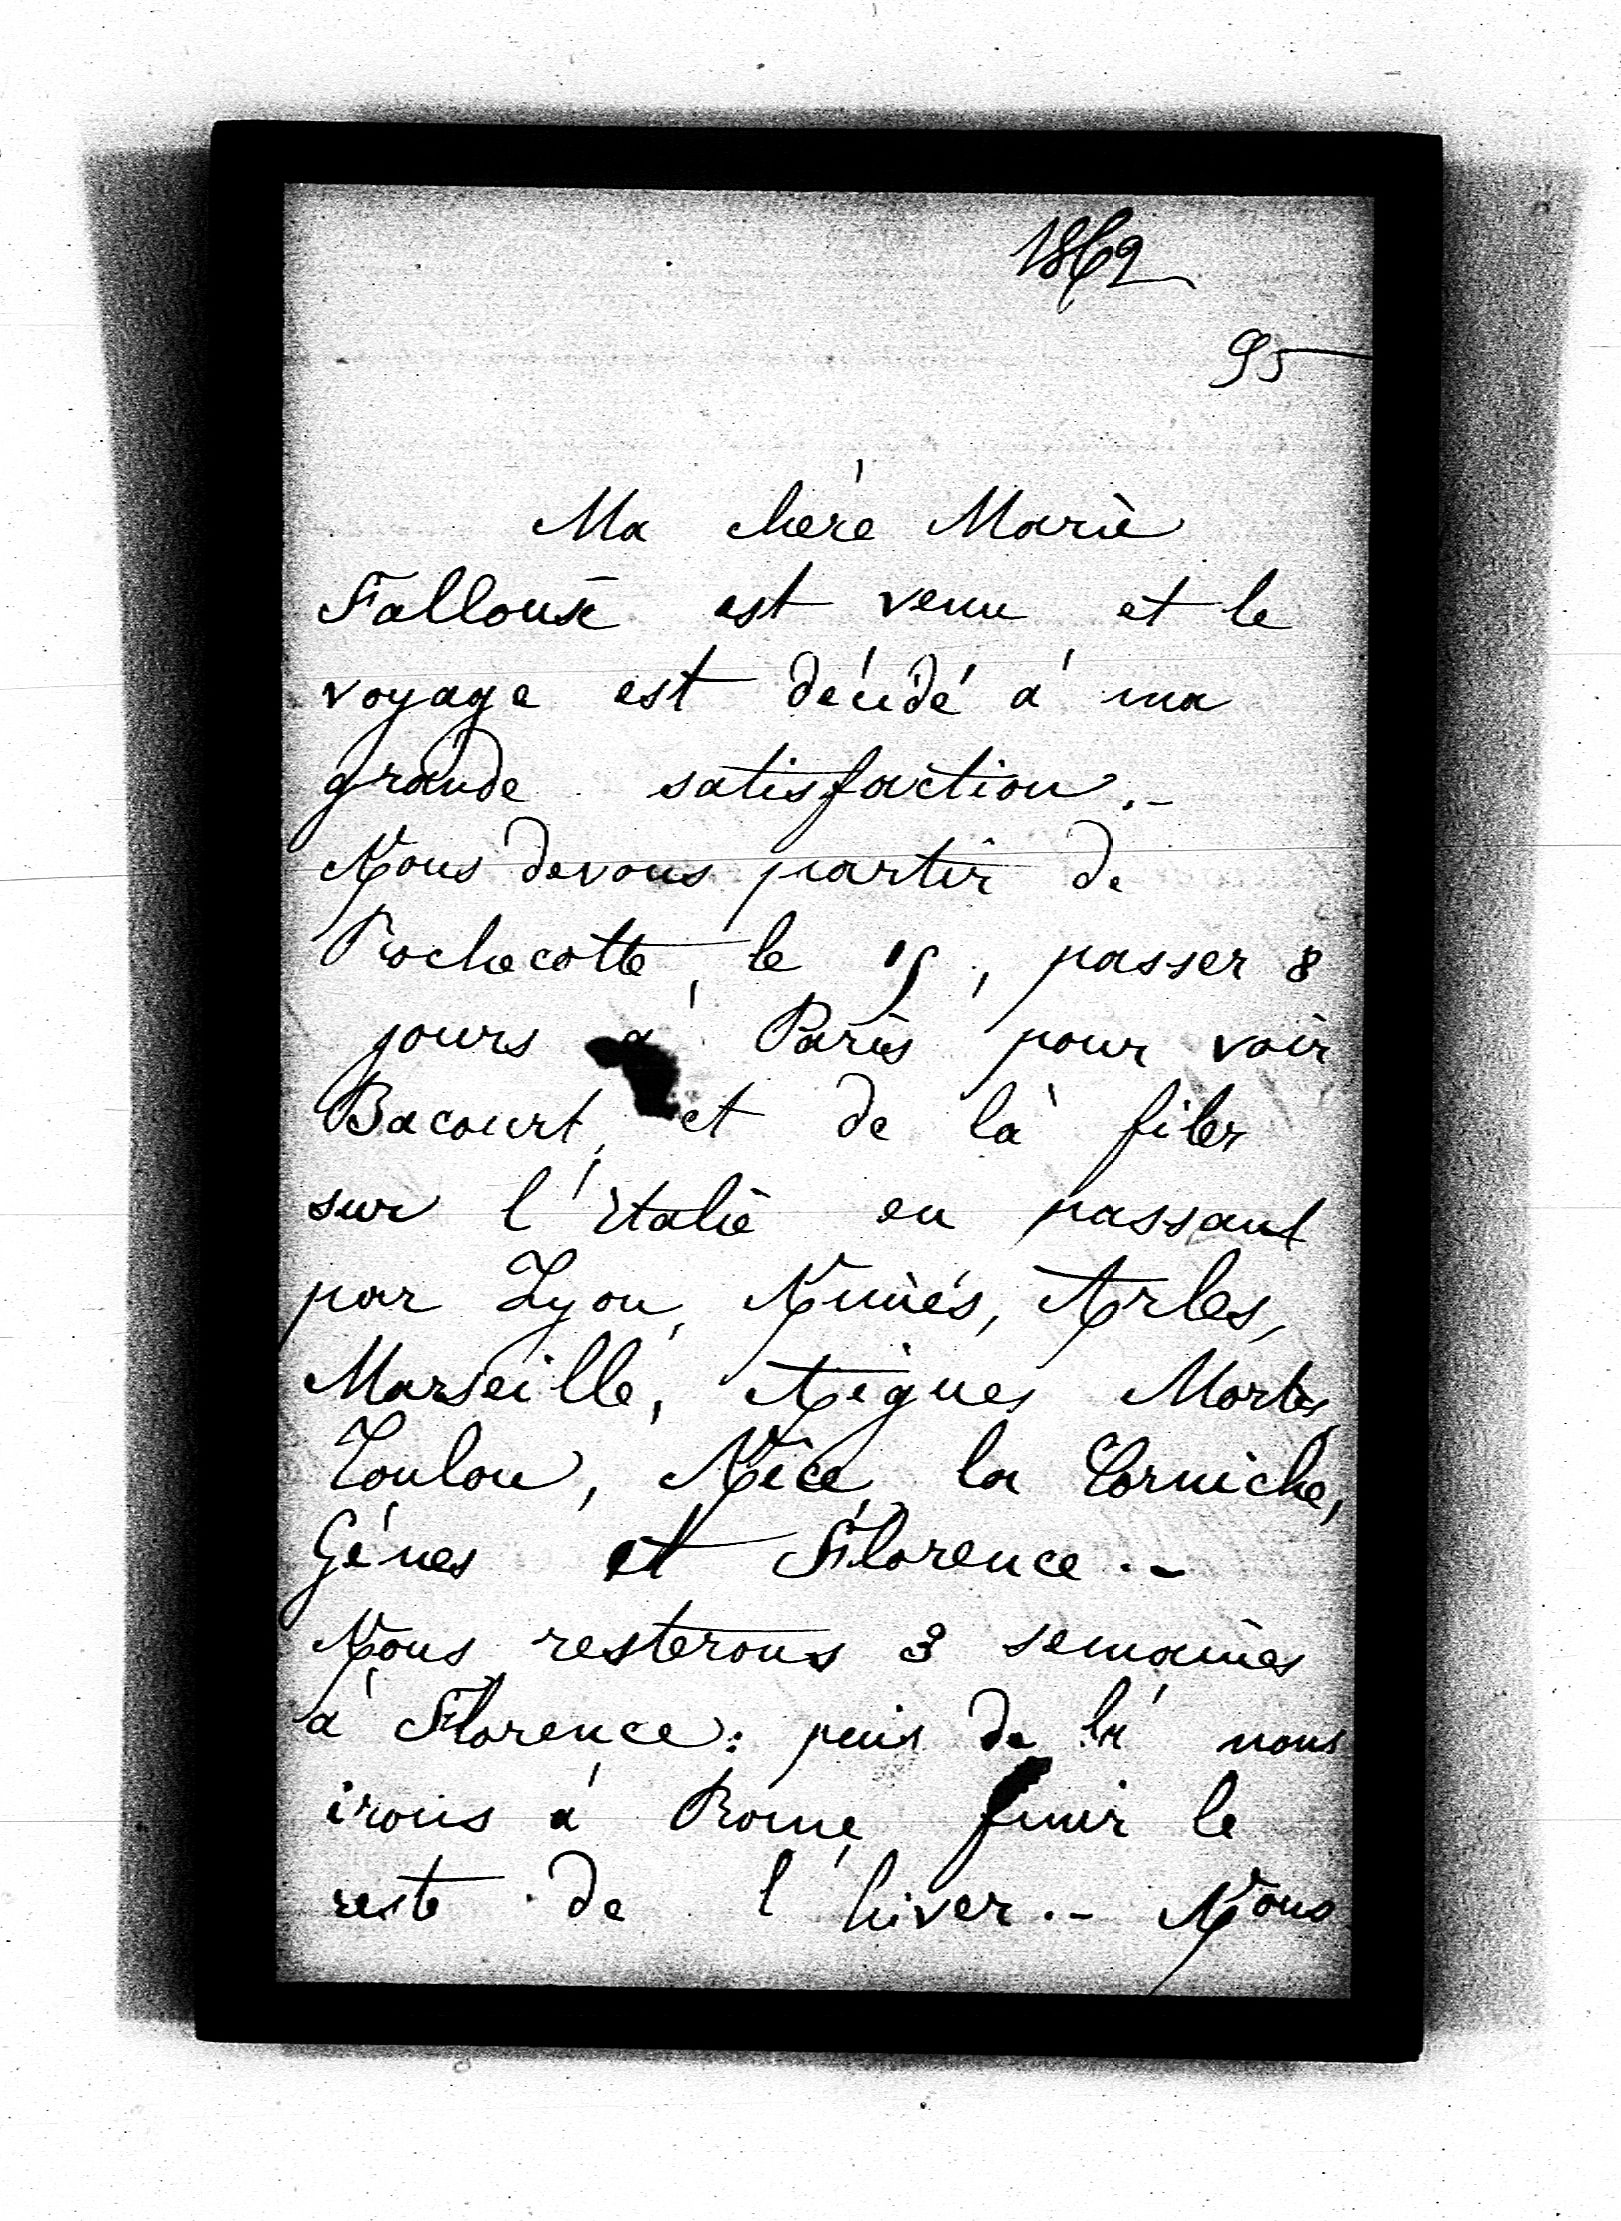 1862
95
Ma chère Marie
Falloux est venu et le
voyage est décidé à ma
grande satisfaction.-
Nous devons partir de
Rochecotte, le 15, passer 8
jours à Paris pour voir
Bacourt, et de là filer
sur l'Italie en passant
par Lyon, Nimes, Arles,
Marseille, Aigues Mortes,
Toulon, Nice, la Corniche,
Gênes et Florence.-
Nous resterons 3 semaines
à Florence: puis de là nous
irons à Rome, finir le
reste de l'hiver.- Nous